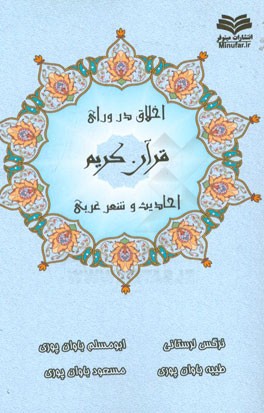 انتشارات مینوفر
Minufar.ir
اخلاق در ورای
قرآن کریم
احادیث و شعر عربی
نرگس لرستانی
ابومسلم یاوان پوری
طیبه یاوان پوری
مسعود یاوان پوری